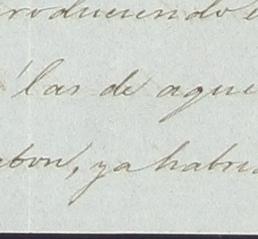 roduciendo
las de aque
, ya habri